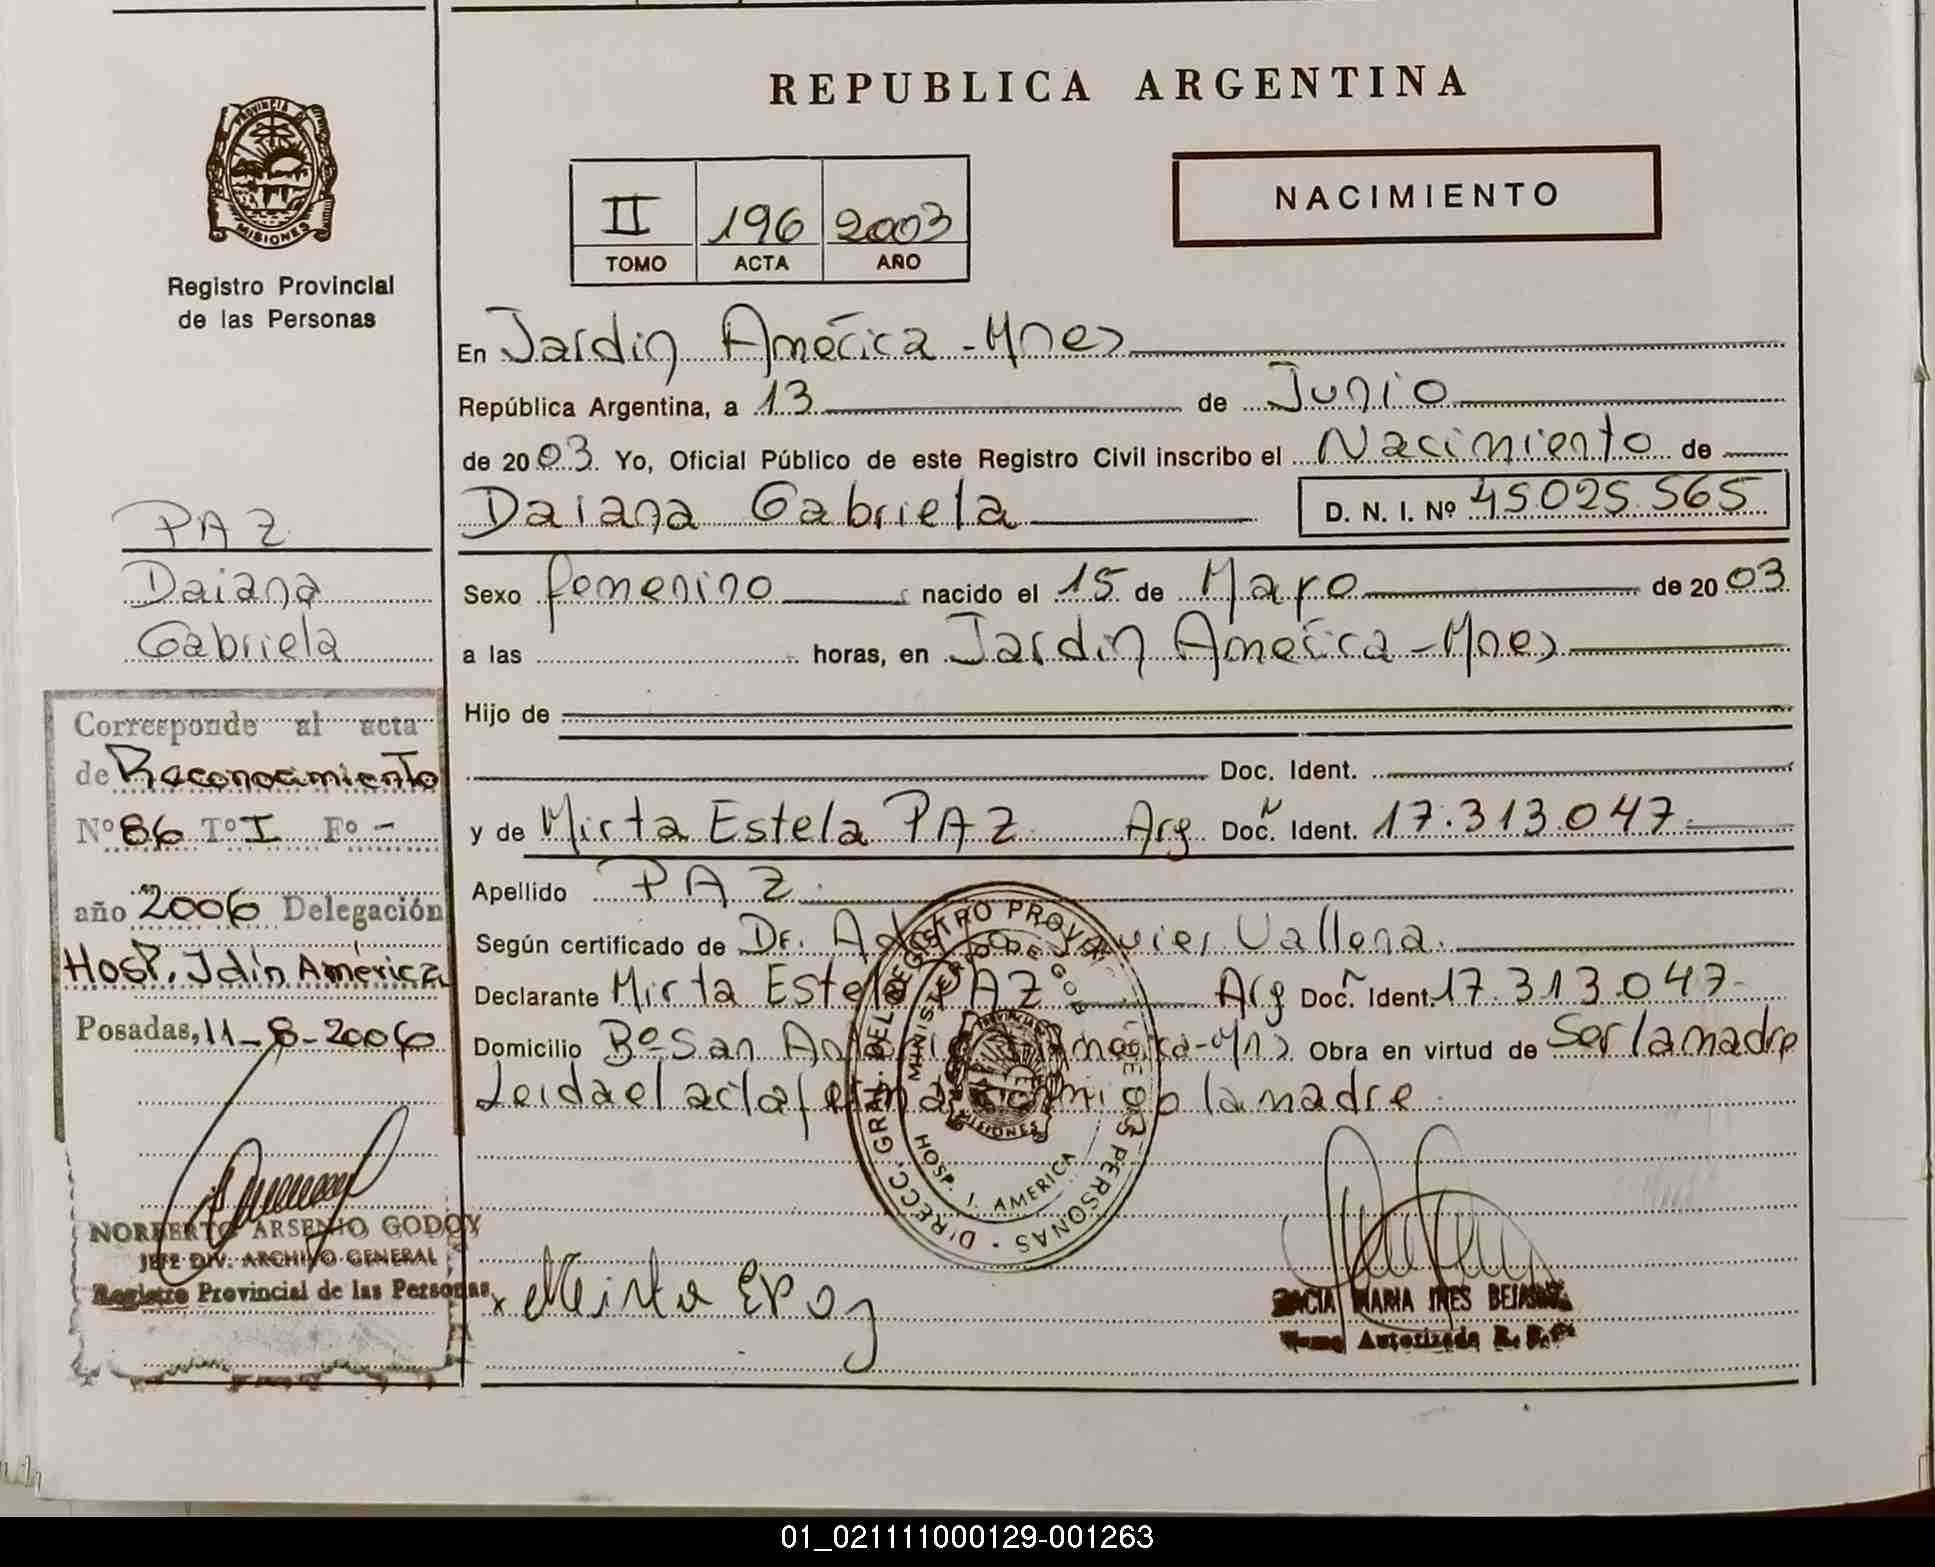 REPUBLICA ARGENTINA
PROVINCIA DE
MISIONES
Registro Provincial
de las Personas
II 196 2003
TOMO ACTA AÑO
NACIMIENTO
En Jardin América - Mnes
República Argentina, a 13 de Junio
de 2003. Yo, Oficial Público de este Registro Civil inscribo el Nacimiento de
Daiana Gabriela D. N. I. Nº 45.025.565
PAZ
Daiana
Gabriela
Sexo femenino nacido el 15 de Mayo de 2003
a las horas, en Jardin América - Mnes
Hijo de
Doc. Ident.
y de Mirta Estela PAZ Arg Doc. Ident. 17.313.047
Apellido PAZ
Según certificado de Dr. Javier Vallena
Declarante Mirta Estela PAZ Arg Doc. Ident. 17.313.047
Domicilio Bº San Antonio América - Mns Obra en virtud de Ser la madre
Leida el acta firma conmigo la madre
Corresponde al acta
de Reconocimiento
Nº 86 Tº I Fº -
año 2006 Delegación
Hosp. Jdín América
Posadas, 11-8-2006
NORBERTO ARSENIO GODOY
JEFE DIV. ARCHIVO GENERAL
Registro Provincial de las Personas
DIRECC. GRAL. DEL REGISTRO PROV. DE LAS PERSONAS
MINISTERIO DE GOB.
HOSP. J. AMERICA
MISIONES
x Mirta E Paz
MARIA INES
Autorizada
01_021111000129-001263